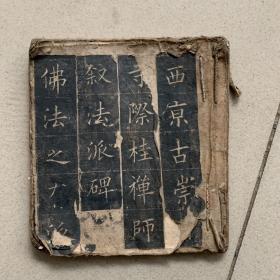 西京古崇
際桂禅師
叙法派碑
佛法之大